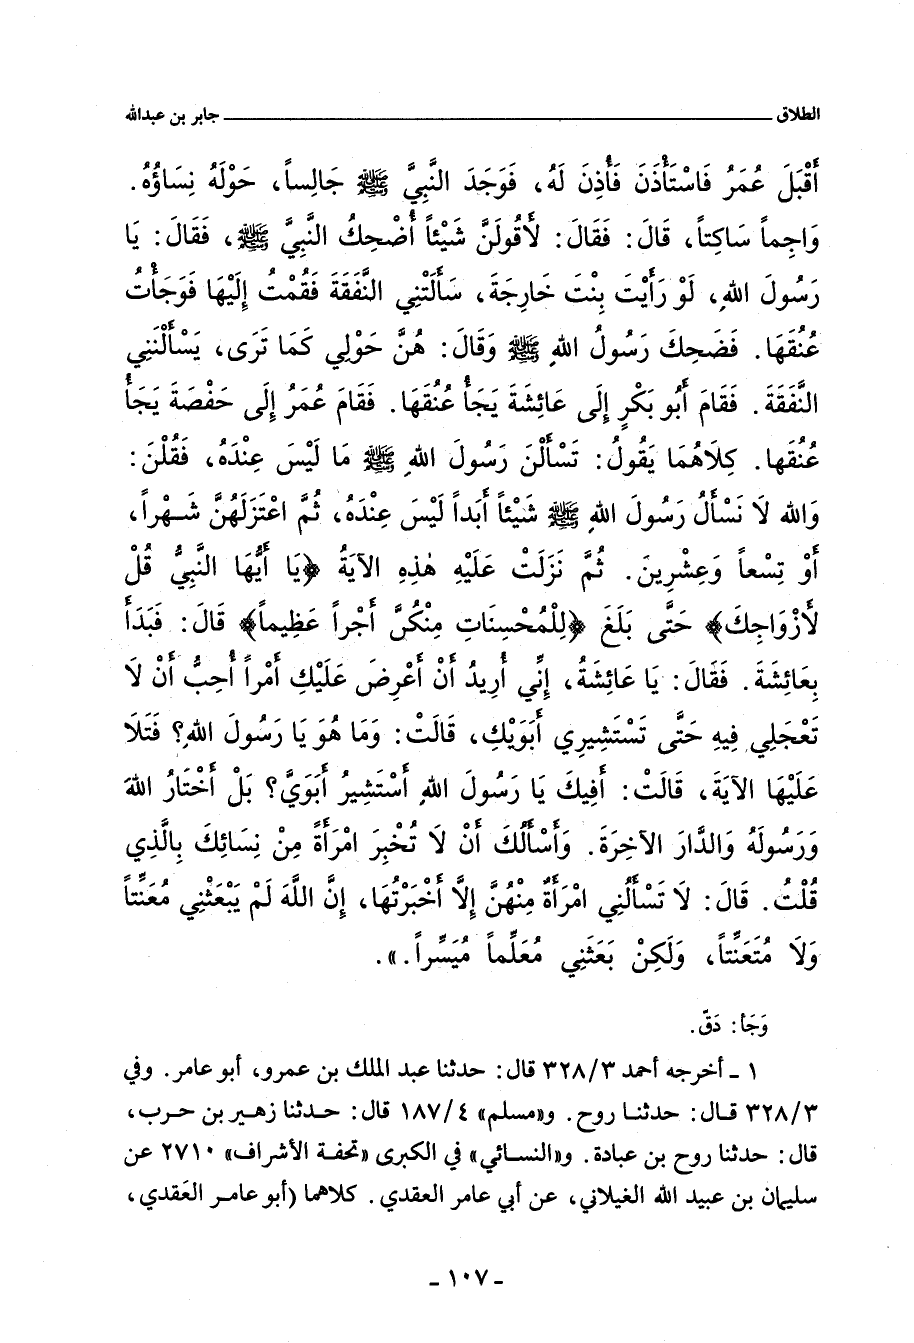 الطلاق ــــــــــــــــــــ جابر بن عبدالله
أَقْبَلَ عُمَرُ فَاسْتَأْذَنَ فَأُذِنَ لَهُ، فَوَجَدَ النَّبِيَّ ﷺ جَالِساً، حَوْلَهُ نِسَاؤُهُ.
وَاجِماً سَاكِتاً، قَالَ: فَقَالَ: لَأَقُولَنَّ شَيْئاً أُضْحِكُ النَّبِيَّ ﷺ، فَقَالَ: يَا
رَسُولَ اللهِ، لَوْ رَأَيْتَ بِنْتَ خَارِجَةَ، سَأَلَتْنِي النَّفَقَةَ فَقُمْتُ إِلَيْهَا فَوَجَأْتُ
عُنُقَهَا. فَضَحِكَ رَسُولُ اللهِ ﷺ وَقَالَ: هُنَّ حَوْلِي كَمَا تَرَى، يَسْأَلْنَنِي
النَّفَقَةَ. فَقَامَ أَبُو بَكْرٍ إِلَى عَائِشَةَ يَجَأُ عُنُقَهَا. فَقَامَ عُمَرُ إِلَى حَفْصَةَ يَجَأُ
عُنُقَها. كِلَاهُمَا يَقُولُ: تَسْأَلْنَ رَسُولَ اللهِ ﷺ مَا لَيْسَ عِنْدَهُ، فَقُلْنَ:
وَالله لَا نَسْأَلُ رَسُولَ اللهِ ﷺ شَيْئاً أَبَداً لَيْسَ عِنْدَهُ، ثُمَّ اعْتَزَلَهُنَّ شَهْراً،
أَوْ تِسْعاً وَعِشْرِينَ. ثُمَّ نَزَلَتْ عَلَيْهِ هٰذِهِ الآيَةُ ﴿يَا أَيُّهَا النَّبِيُّ قُلْ
لأَزْوَاجِكَ﴾ حَتَّى بَلَغَ ﴿لِلْمُحْسِنَاتِ مِنْكُنَّ أَجْراً عَظِيماً﴾ قَالَ: فَبَدَأَ
بِعَائِشَةَ. فَقَالَ: يَا عَائِشَةُ، إِنِّي أُرِيدُ أَنْ أَعْرِضَ عَلَيْكِ أَمْراً أُحِبُّ أَنْ لَا
تَعْجَلِي فِيهِ حَتَّى تَسْتَشِيرِي أَبَوَيْكِ، قَالَتْ: وَمَا هُوَ يَا رَسُولَ اللهِ؟ فَتَلَا
عَلَيْهَا الآيَةَ، قَالَتْ: أَفِيكَ يَا رَسُولَ اللهِ أَسْتَشِيرُ أَبَوَيَّ؟ بَلْ أَخْتَارُ اللهَ
وَرَسُولَهُ وَالدَّارَ الآخِرَةَ. وَأَسْأَلُكَ أَنْ لَا تُخْبِرَ امْرَأَةً مِنْ نِسَائِكَ بِالَّذِي
قُلْتُ. قَالَ: لَا تَسْأَلُنِي امْرَأَةٌ مِنْهُنَّ إِلَّا أَخْبَرْتُهَا، إِنَّ اللَّهَ لَمْ يَبْعَثْنِي مُعَنِّتاً
وَلَا مُتَعَنِّتاً، وَلَكِنْ بَعَثَنِي مُعَلِّماً مُيَسِّراً.».
وَجَأ: دَقّ.
١ - أخرجه أحمد ٣٢٨/٣ قال: حدثنا عبد الملك بن عمرو، أبو عامر. وفي
٣٢٨/٣ قال: حدثنا روح. و«مسلم» ١٨٧/٤ قال: حدثنا زهير بن حرب،
قال: حدثنا روح بن عبادة. و«النسائي» في الكبرى «تحفة الأشراف» ٢٧١٠ عن
سليمان بن عبيد الله الغيلاني، عن أبي عامر العقدي. كلاهما (أبو عامر العَقدي،
- ١٠٧ -